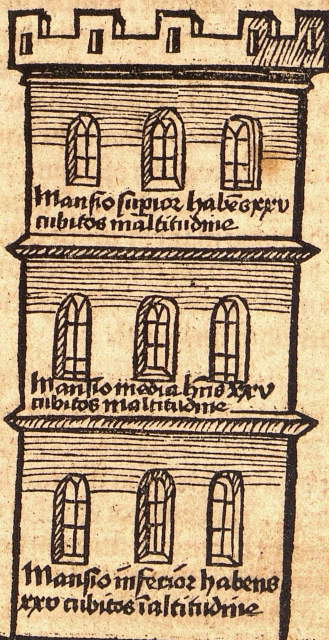 Mansio supior habēs xxv
cubitos in altitudine
Mansio media hn̄s xxv
cubitos in altitudine
Mansio inferior habens
xxv cubitos ī altitudine